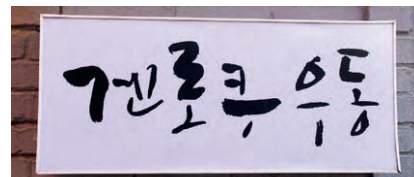 겐로쿠 우동